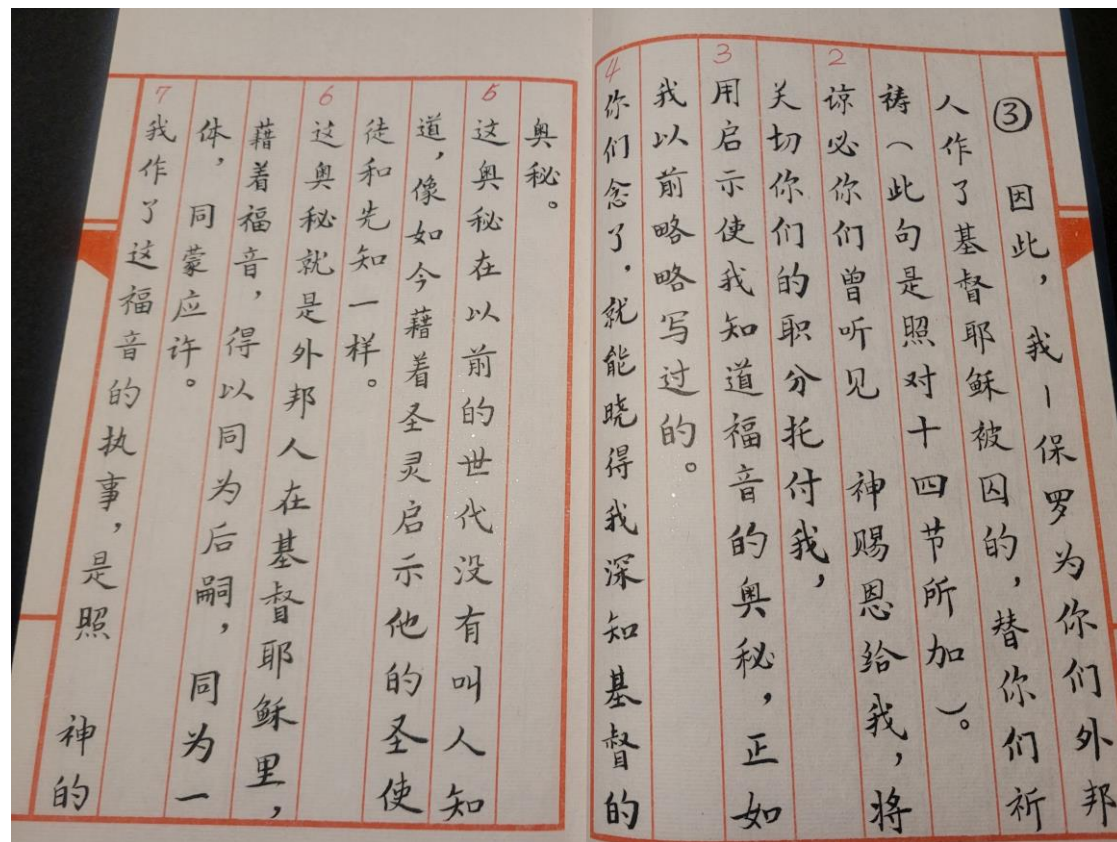 ③ 因此，我－保罗为你们外邦
人作了基督耶稣被囚的，替你们祈
祷（此句是照对十四节所加）。
2 谅必你们曾听见 神赐恩给我，将
关切你们的职分托付我，
3 用启示使我知道福音的奥秘，正如
我以前略略写过的。
4 你们念了，就能晓得我深知基督的
奥秘。
5 这奥秘在以前的世代没有叫人知
道，像如今藉着圣灵启示他的圣使
徒和先知一样。
6 这奥秘就是外邦人在基督耶稣里，
藉着福音，得以同为后嗣，同为一
体，同蒙应许。
7 我作了这福音的执事，是照 神的